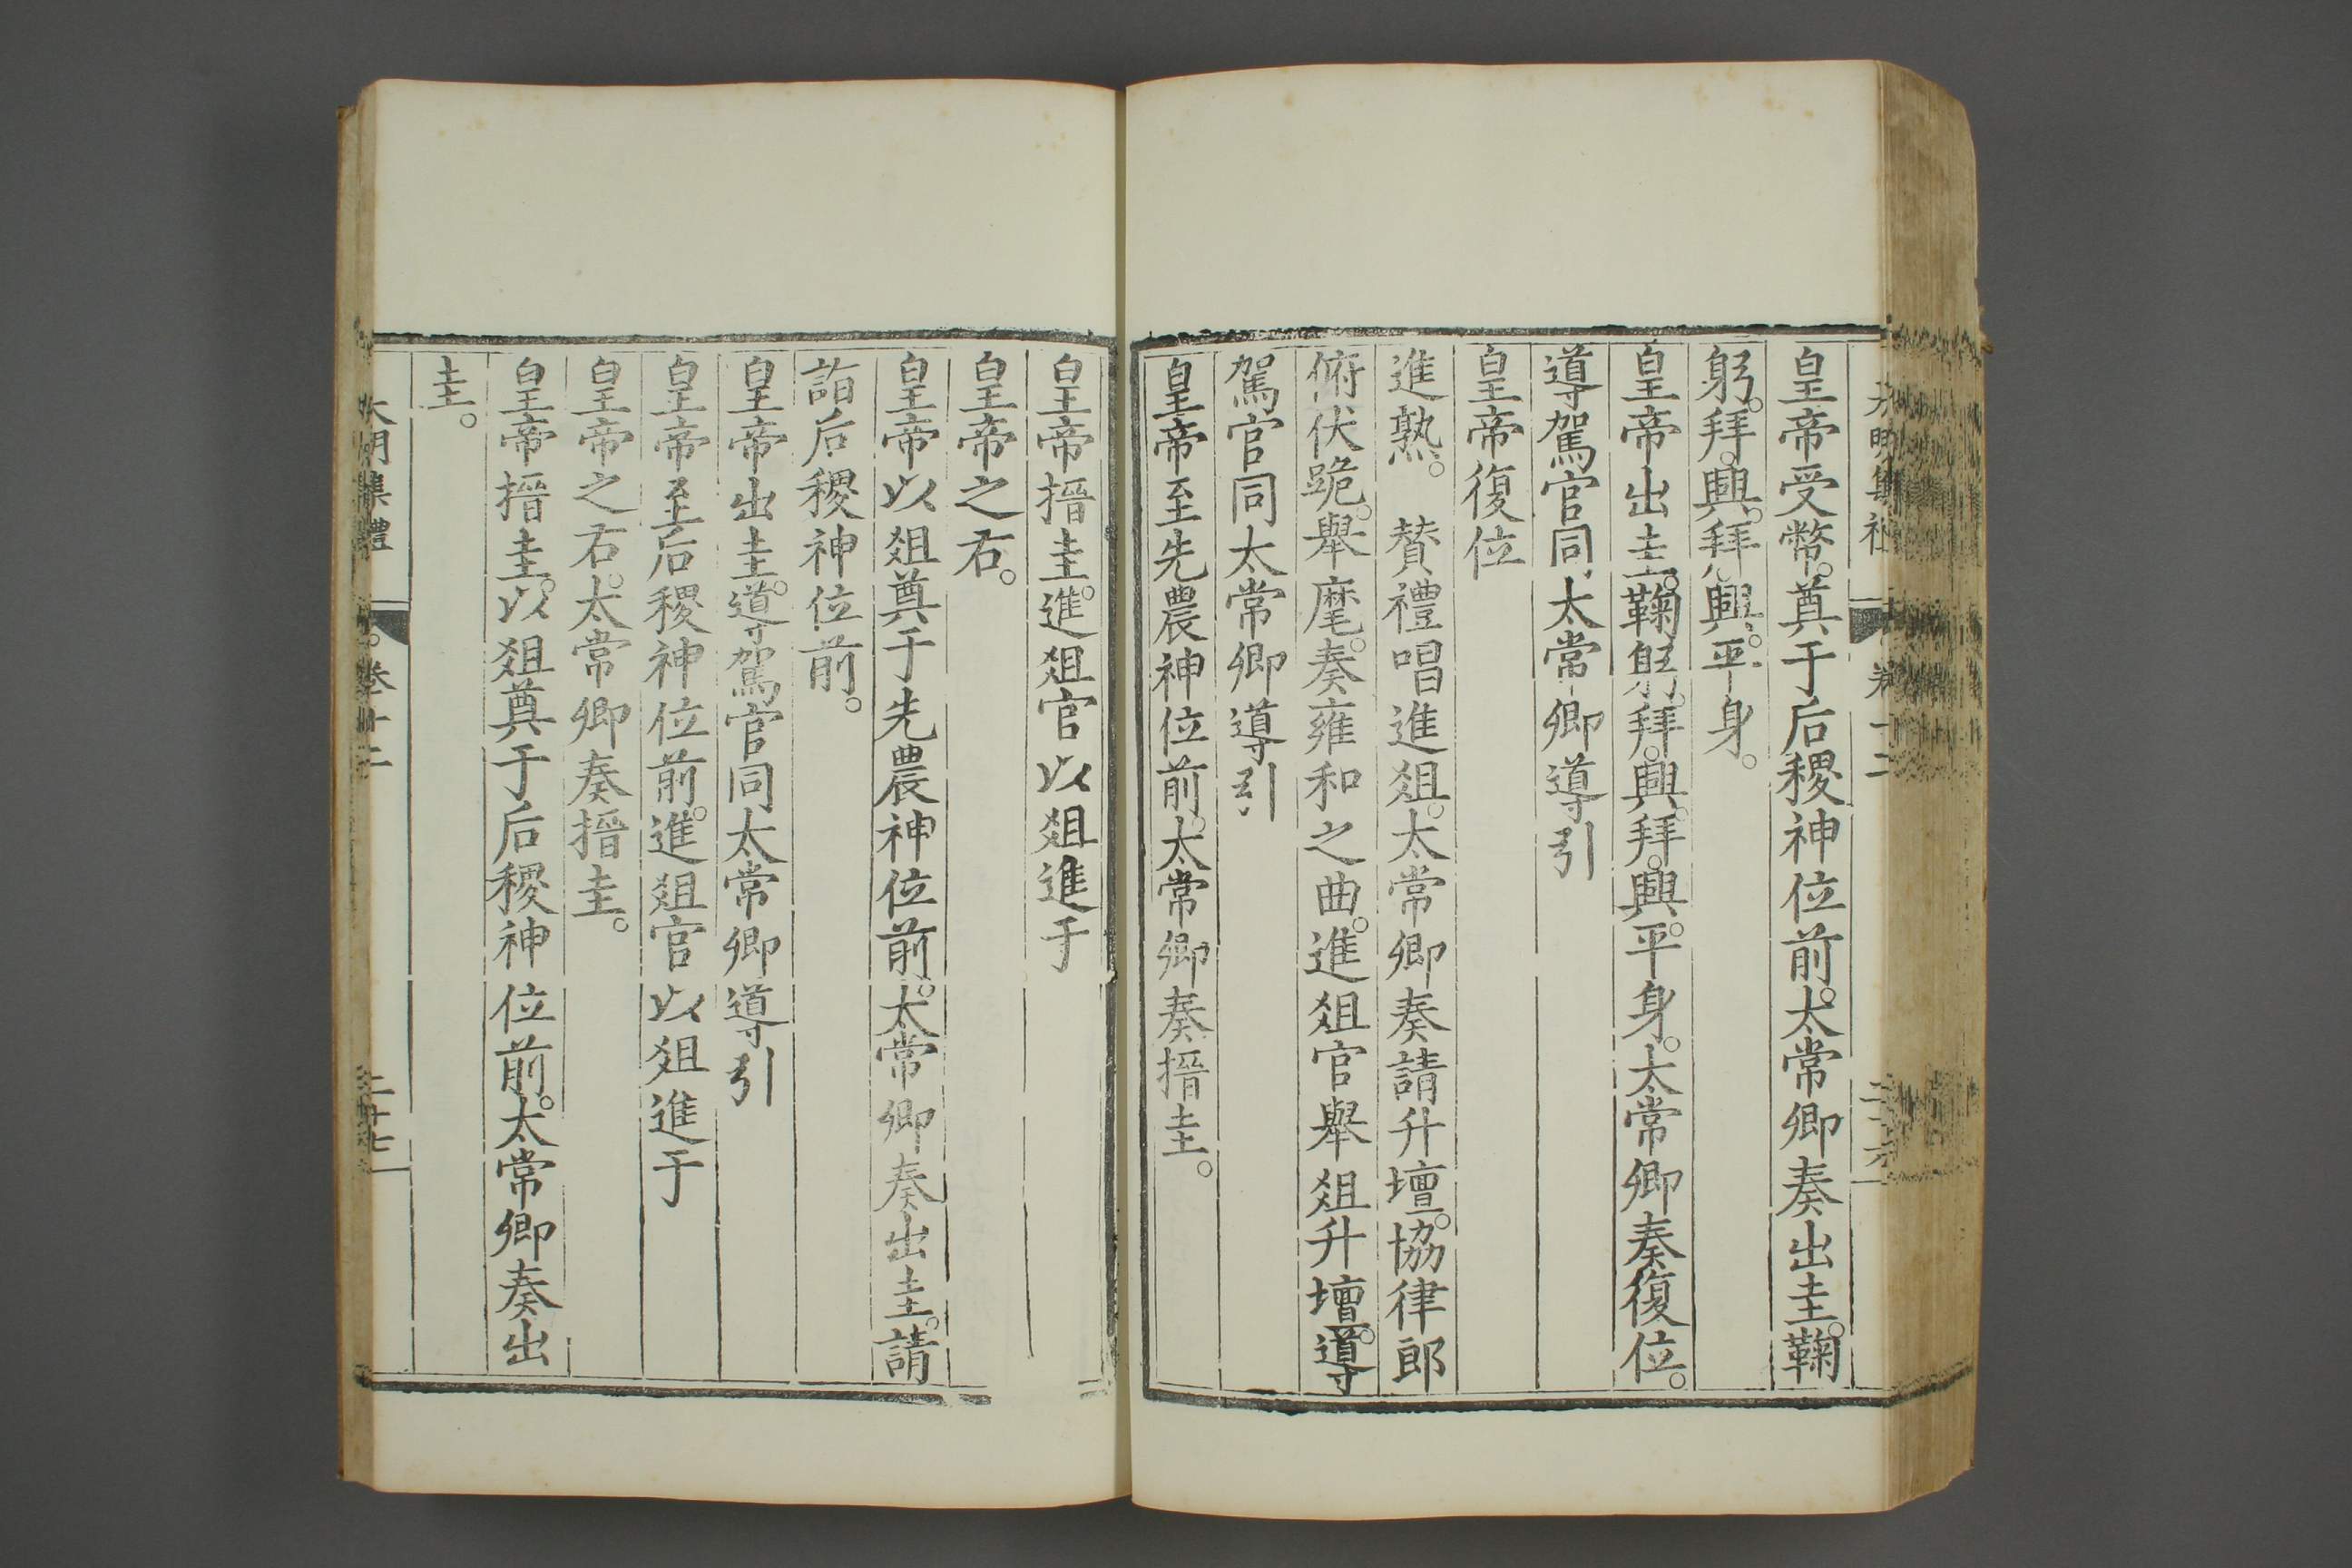 大明集禮 卷十二 二十六
皇帝受幣。奠于后稷神位前。太常卿奏出圭。鞠
躬。拜。興。拜。興。平身。
皇帝出圭。鞠躬。拜。興。拜。興。平身。太常卿奏復位。
導駕官同太常卿導引
皇帝復位
進熟。 贊禮唱進俎。太常卿奏請升壇。協律郎
俯伏跪。舉麾。奏雍和之曲。進俎官舉俎升壇。導
駕官同太常卿導引
皇帝至先農神位前。太常卿奏搢圭。
皇帝搢圭。進俎官以俎進于
皇帝之右。
皇帝以俎奠于先農神位前。太常卿奏出圭。請
詣后稷神位前。
皇帝出圭。導駕官同太常卿導引
皇帝至后稷神位前。進俎官以俎進于
皇帝之右。太常卿奏搢圭。
皇帝搢圭。以俎奠于后稷神位前。太常卿奏出
圭。
大明集禮 卷十二 二十七